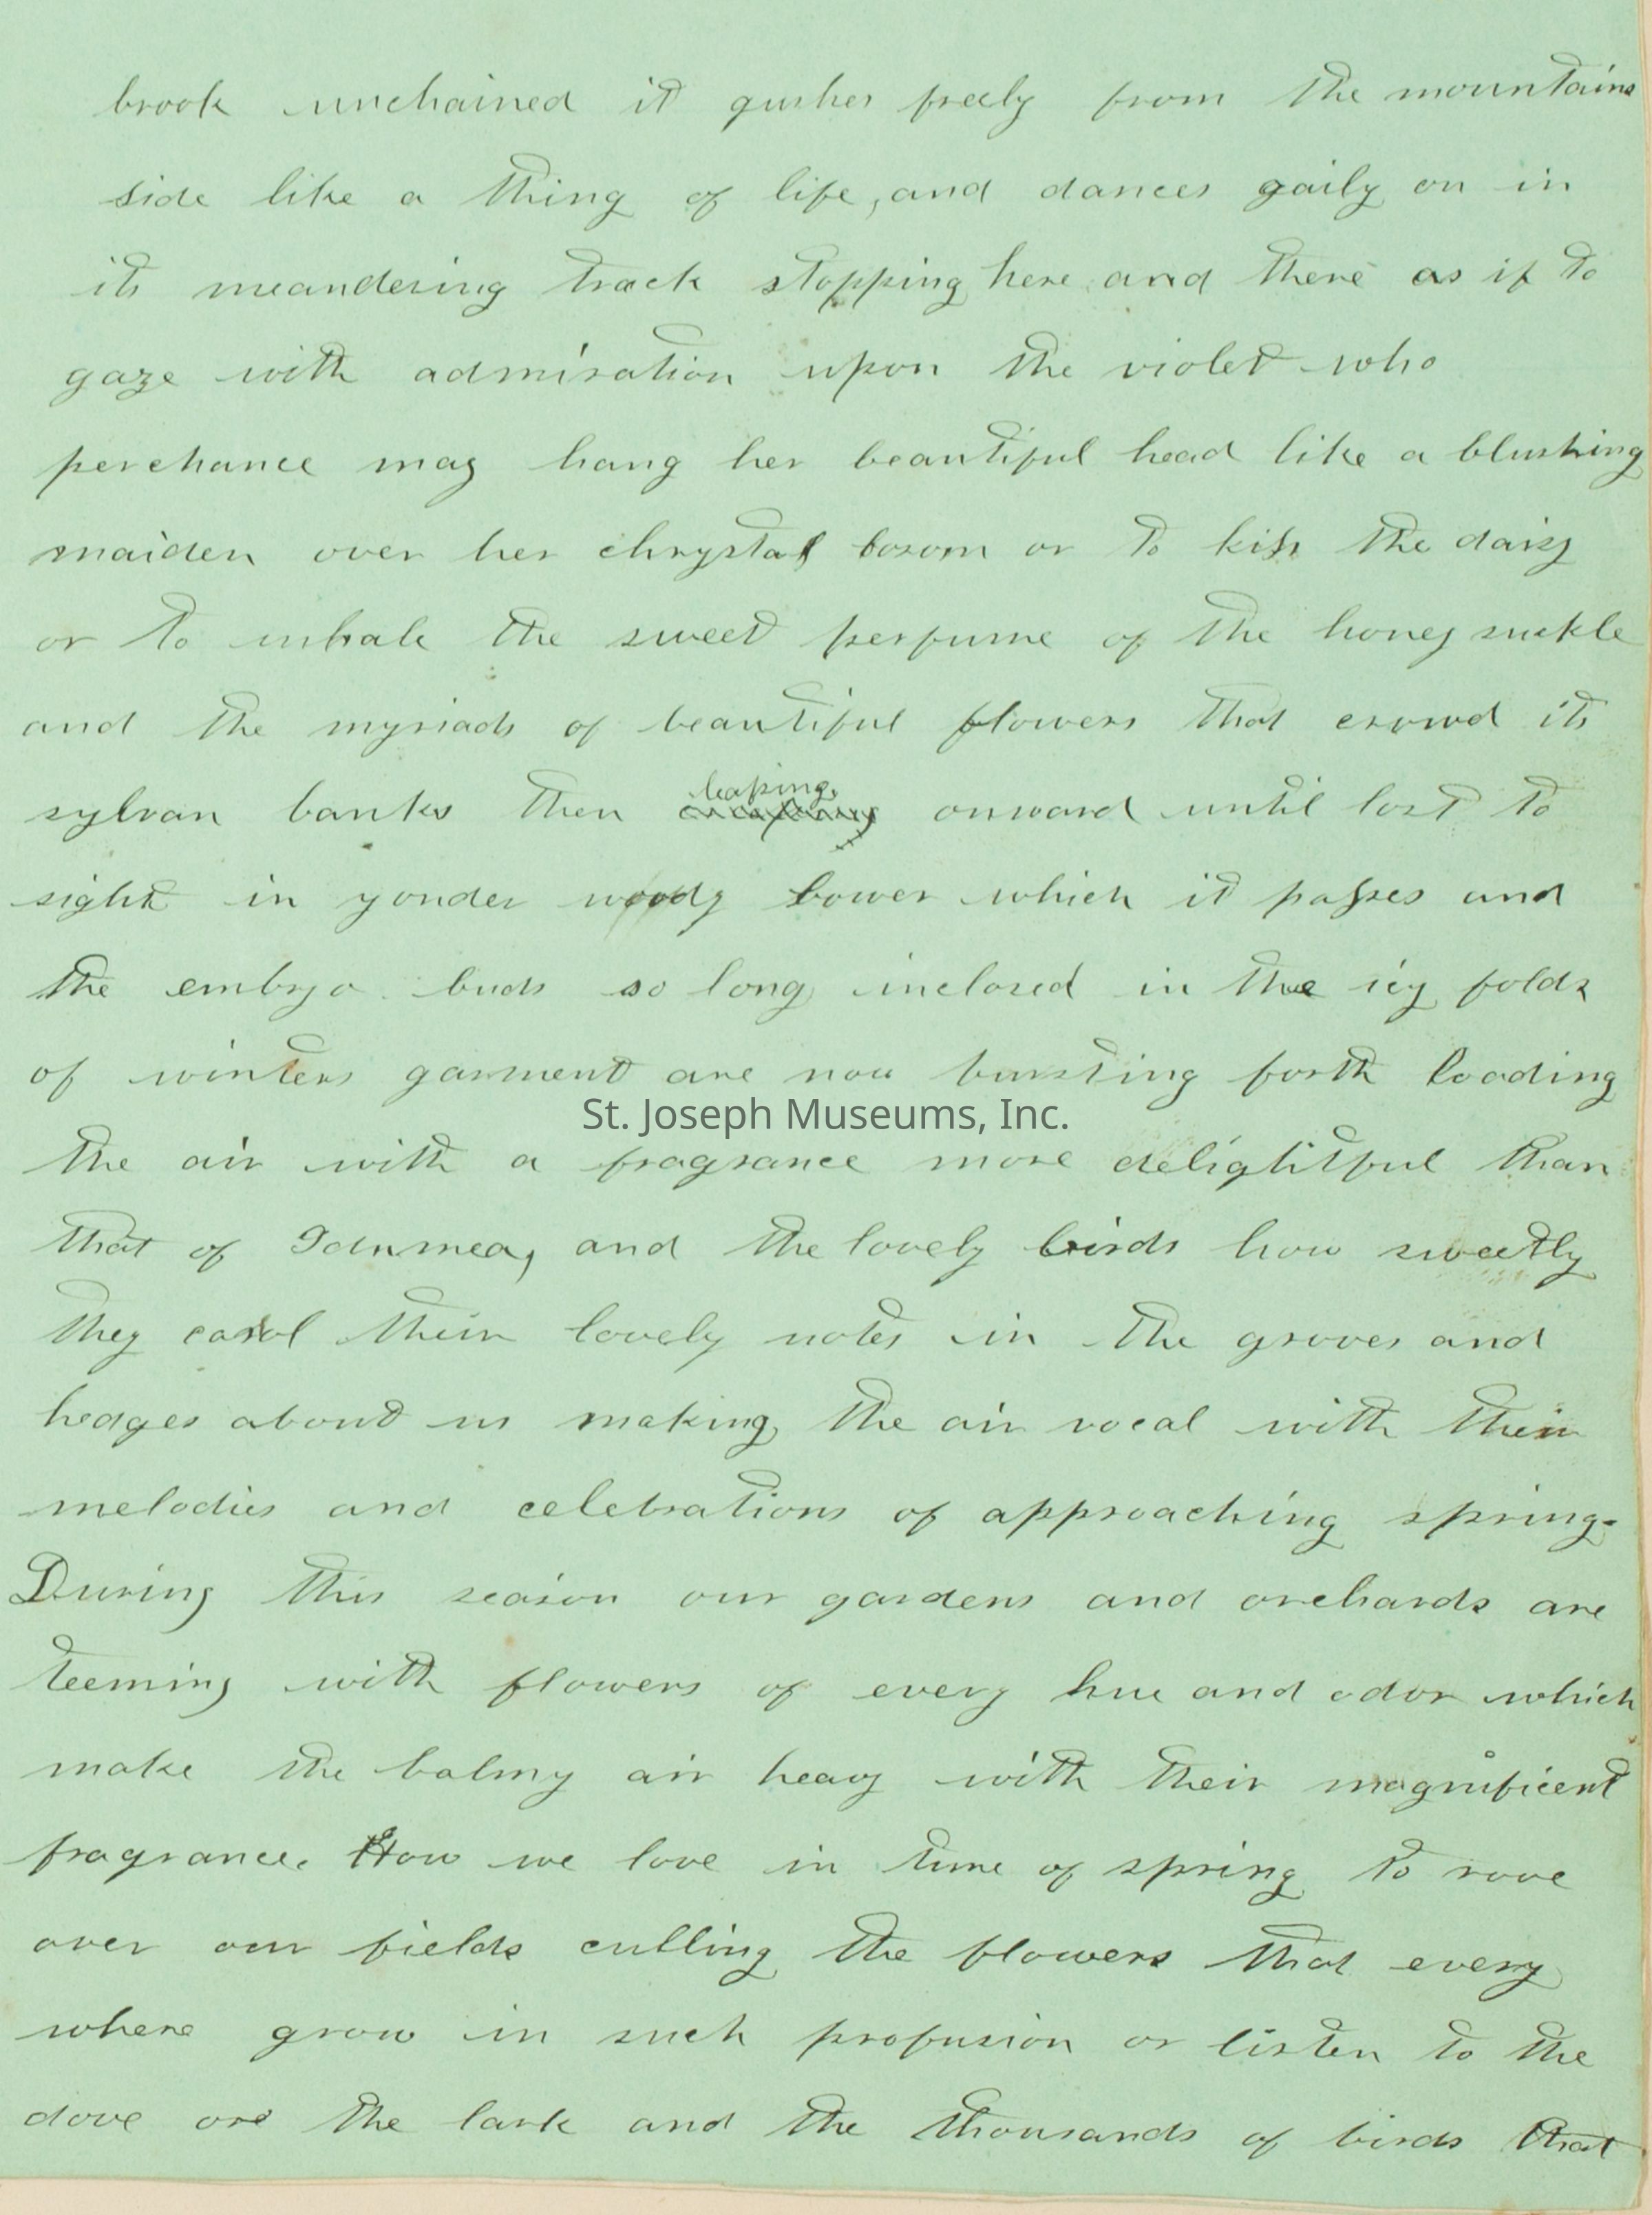 brook unchained it gushes freely from the mountains
side like a thing of life, and dances gaily on in
its meandering track stopping here and there as if to
gaze with admiration upon the violet who
perchance may hang her beautiful head like a blushing
maiden over her chrystal bosom or to kiss the daisy
or to inhale the sweet perfume of the honey suckle
and the myriads of beautiful flowers that crowd its
leaping
sylvan banks then onward until lost to
sight in yonder woody bower which it passes and
the embryo buds so long inclosed in the icy folds
of winters garment are now bursting forth loading
St. Joseph Museums, Inc.
the air with a fragrance more delightful than
that of Idumea, and the lovely birds how sweetly
they carol their lovely notes in the groves and
hedges about us making the air vocal with their
melodies and celebrations of approaching spring.
During this season our gardens and orchards are
teeming with flowers of every hue and odor which
make the balmy air heavy with their magnificent
fragrance. How we love in time of spring to rove
over our fields culling the flowers that every
where grow in such profusion or listen to the
dove ore the lark and the thousands of birds that